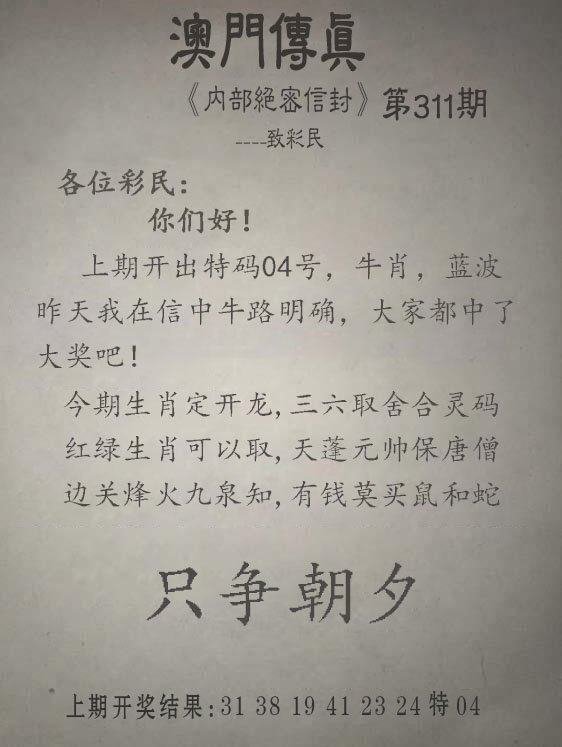 澳門傳眞
《内部絕密信封》第311期
----致彩民
各位彩民:
你们好!
上期开出特码04号，牛肖，蓝波
昨天我在信中牛路明确，大家都中了
大奖吧!
今期生肖定开龙,三六取舍合灵码
红绿生肖可以取,天蓬元帅保唐僧
边关烽火九泉知,有钱莫买鼠和蛇
只争朝夕
上期开奖结果:31 38 19 41 23 24 特 04